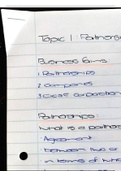 Topic 1 Partnersh
Business forms
1. Partnerships
2. companies
3. close corporation
Partnerships
what is a partne
Agreement
between two o
in terms of wh